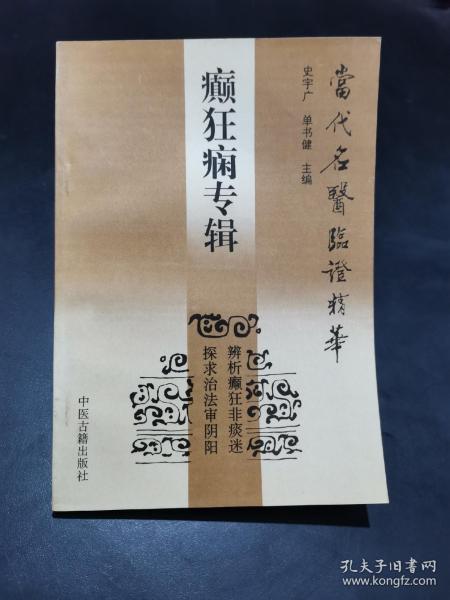 當代名醫臨證精華
史宇广 单书健 主编
癫狂痫专辑
辨析癫狂非痰迷
探求治法审阴阳
中医古籍出版社
孔夫子旧书网
www.kongfz.com